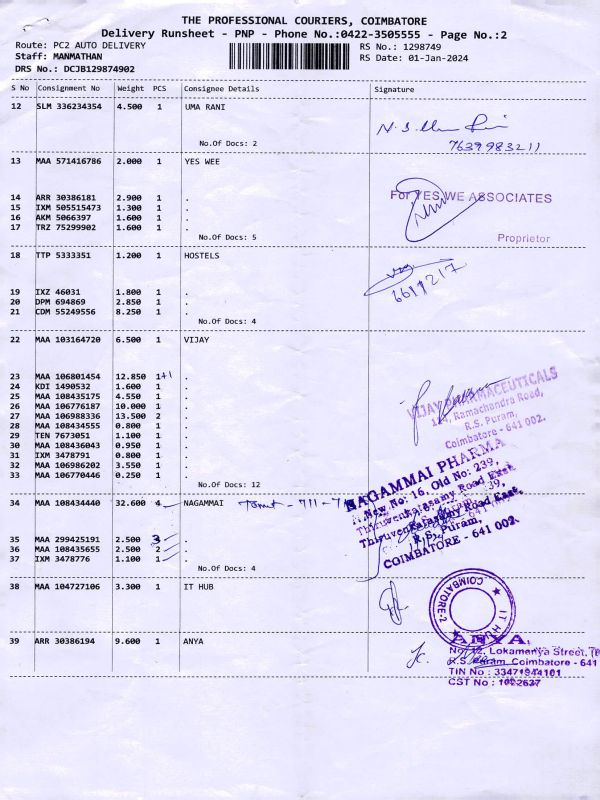 THE PROFESSIONAL COURIERS, COIMBATORE
Delivery Runsheet - PNP - Phone No.:0422-3505555 - Page No.:2
Route: PC2 AUTO DELIVERY RS No.: 1298749
Staff: MANMATHAN RS Date: 01-Jan-2024
DRS No.: DCJB129874902
S No Consignment No Weight PCS Consignee Details Signature
12 SLM 336234354 4.500 1 UMA RANI
No.Of Docs: 2
7639983211
13 MAA 571416786 2.000 1 YES WEE
For YES WE ASSOCIATES
14 ARR 30386181 2.900 1 .
15 IXM 505515473 1.300 1 .
16 AKM 5066397 1.600 1 .
17 TRZ 75299902 1.600 1 .
No.Of Docs: 5
Proprietor
18 TTP 5333351 1.200 1 HOSTELS
19 IXZ 46031 1.800 1 .
20 DPM 694869 2.850 1 .
21 CDM 55249556 8.250 1 .
No.Of Docs: 4
22 MAA 103164720 6.500 1 VIJAY
23 MAA 106801454 12.850 1+1 .
24 KDI 1490532 1.600 1 .
25 MAA 108435175 4.550 1 .
26 MAA 106776187 10.000 1 .
27 MAA 106988336 13.500 2 .
28 MAA 108434555 0.800 1 .
29 TEN 7673051 1.100 1 .
30 MAA 108436043 0.950 1 .
31 IXM 3478791 0.800 1 .
32 MAA 106986202 3.550 1 .
33 MAA 106770446 0.250 1 .
No.Of Docs: 12
VIJAY PHARMACEUTICALS
Ramachandra Road,
R.S. Puram,
Coimbatore - 641 002.
34 MAA 108434440 32.600 4 NAGAMMAI
35 MAA 299425191 2.500 3 .
36 MAA 108435655 2.500 2 .
37 IXM 3478776 1.100 1 .
No.Of Docs: 4
NAGAMMAI PHARMA
New No: 16, Old No: 239,
Thiruvenkatasamy Road East
R.S. Puram,
COIMBATORE - 641 002
38 MAA 104727106 3.300 1 IT HUB
COIMBATORE-2
IT HUB
39 ARR 30386194 9.600 1 ANYA
ANYA
Lokamanya Street,
R.S. Puram, Coimbatore - 641
TIN No : 33471944101
CST No : 1022637